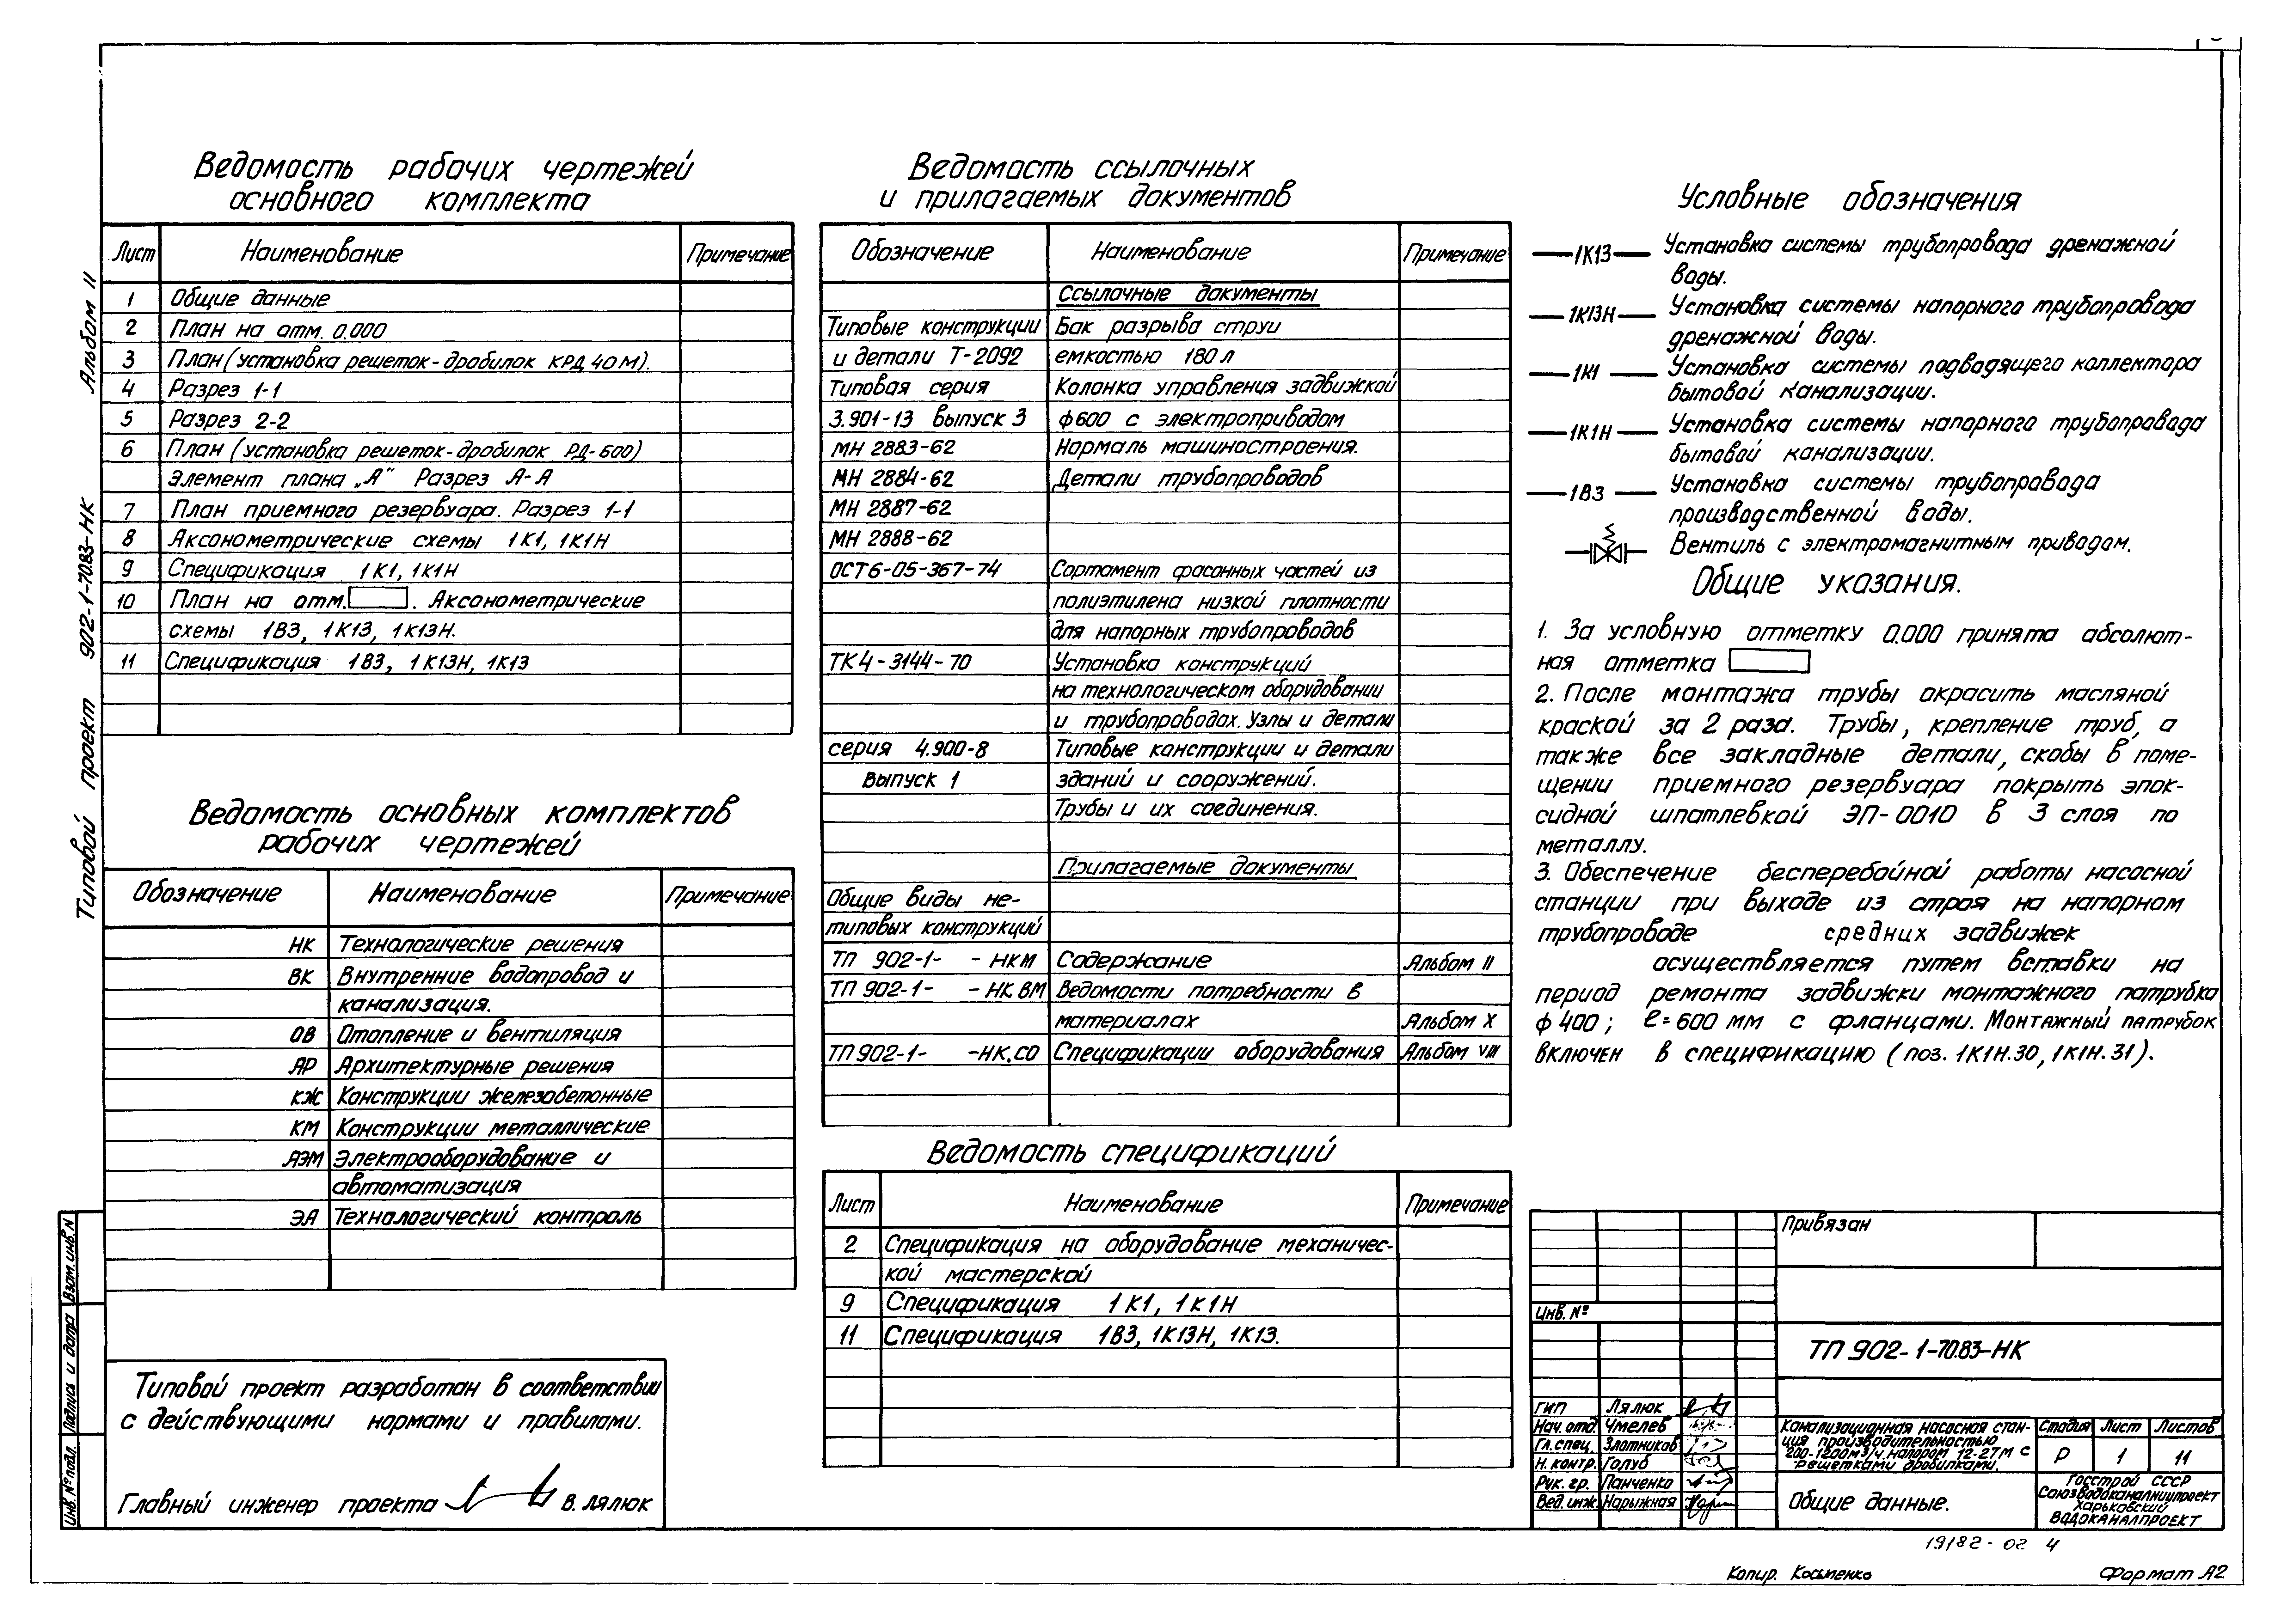 Альбом II
Типовой проект 902-1-70.83-НК
Ведомость рабочих чертежей
основного комплекта
Лист Наименование Примечание
1 Общие данные
2 План на отм. 0.000
3 План (установка решеток-дробилок КРД 40М).
4 Разрез 1-1
5 Разрез 2-2
6 План (установка решеток-дробилок РД-600)
Элемент плана „А" Разрез А-А
7 План приемного резервуара. Разрез 1-1
8 Аксонометрические схемы 1К1, 1К1Н
9 Спецификация 1К1, 1К1Н
10 План на отм. . Аксонометрические
схемы 1В3, 1К13, 1К13Н.
11 Спецификация 1В3, 1К13Н, 1К13
Ведомость основных комплектов
рабочих чертежей
Обозначение Наименование Примечание
НК Технологические решения
ВК Внутренние водопровод и
канализация.
ОВ Отопление и вентиляция
АР Архитектурные решения
КЖ Конструкции железобетонные
КМ Конструкции металлические
АЭМ Электрооборудование и
автоматизация
ЭА Технологический контроль
Типовой проект разработан в соответствии
с действующими нормами и правилами.
Главный инженер проекта В. Лялюк
Взам. инв. N
Подпись и дата
Инв. № подл.
Ведомость ссылочных
и прилагаемых документов
Обозначение Наименование Примечание
Ссылочные документы
Типовые конструкции Бак разрыва струи
и детали Т-2092 емкостью 180 л
типовая серия Колонка управления задвижкой
3.901-13 выпуск 3 ф600 с электроприводом
МН 2883-62 Нормаль машиностроения.
МН 2884-62 Детали трубопроводов
МН 2887-62
МН 2888-62
ОСТ6-05-367-74 Сортамент фасонных частей из
полиэтилена низкой плотности
для напорных трубопроводов
ТК4-3144-70 Установка конструкций
на технологическом оборудовании
и трубопроводах. Узлы и детали
серия 4.900-8 Типовые конструкции и детали
выпуск 1 зданий и сооружений.
Трубы и их соединения.
Прилагаемые документы
Общие виды не-
типовых конструкций
ТП 902-1- -НКМ Содержание Альбом II
ТП 902-1- -НК.ВМ Ведомости потребности в
материалах Альбом X
ТП 902-1- -НК.СО Спецификации оборудования Альбом VIII
Ведомость спецификаций
Лист Наименование Примечание
2 Спецификация на оборудование механичес-
кой мастерской
9 Спецификация 1К1, 1К1Н
11 Спецификация 1В3, 1К13Н, 1К13.
Условные обозначения
1К13 Установка системы трубопровода дренажной
воды.
1К13Н Установка системы напорного трубопровода
дренажной воды.
1К1 Установка системы подводящего коллектора
бытовой канализации.
1К1Н Установка системы напорного трубопровода
бытовой канализации.
1В3 Установка системы трубопровода
производственной воды.
Вентиль с электромагнитным приводом.
Общие указания.
1. За условную отметку 0.000 принята абсолют-
ная отметка
2. После монтажа трубы окрасить масляной
краской за 2 раза. Трубы, крепление труб, а
также все закладные детали, скобы в поме-
щении приемного резервуара покрыть эпок-
сидной шпатлевкой ЭП-0010 в 3 слоя по
металлу.
3. Обеспечение бесперебойной работы насосной
станции при выходе из строя на напорном
трубопроводе средних задвижек
осуществляется путем вставки на
период ремонта задвижки монтажного патрубка
ф 400; ℓ=600 мм с фланцами. Монтажный патрубок
включен в спецификацию (поз. 1К1Н.30, 1К1Н.31).
Привязан
Инв. №
ТП 902-1-70.83-НК
ГИП Лялюк
Нач. отд. Чмелев
Гл. спец. Злотников
Н. контр. Голуб
Рук. гр. Панченко
Вед. инж. Нарыжная
Канализационная насосная стан-
ция производительностью
200-1200м3/ч. напором 12-27м с
решетками дробилками.
Стадия Лист Листов
Р 1 11
Общие данные.
Госстрой СССР
Союзводоканалниипроект
Харьковский
Водоканалпроект
19182-02 4
Копир. Косыпенко Формат А2